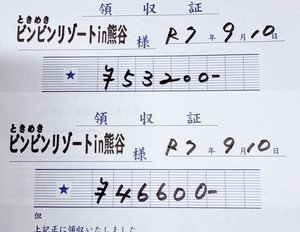 領収証
ときめき
ビンビンリゾートin熊谷 様 R7年9月10日
★ ¥53200-
領収証
ときめき
ビンビンリゾートin熊谷 様 R7年9月10日
★ ¥46600-
但
上記正に領収いたしました